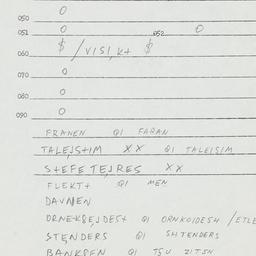 050 0
051 0 052 0
060 $ /VISI,K+ $
070 0
080 0
090 0
FRANEN QI FAQAN
TALEISTIM XX QI TALEISIM
STEFE TEJRES XX
FLEKT+ QI MEN
DAVNEN
QI ORNKOIDESH /ETLE
STENDERS QI SHTENDERS
BANKREN QI TSU ZITSN